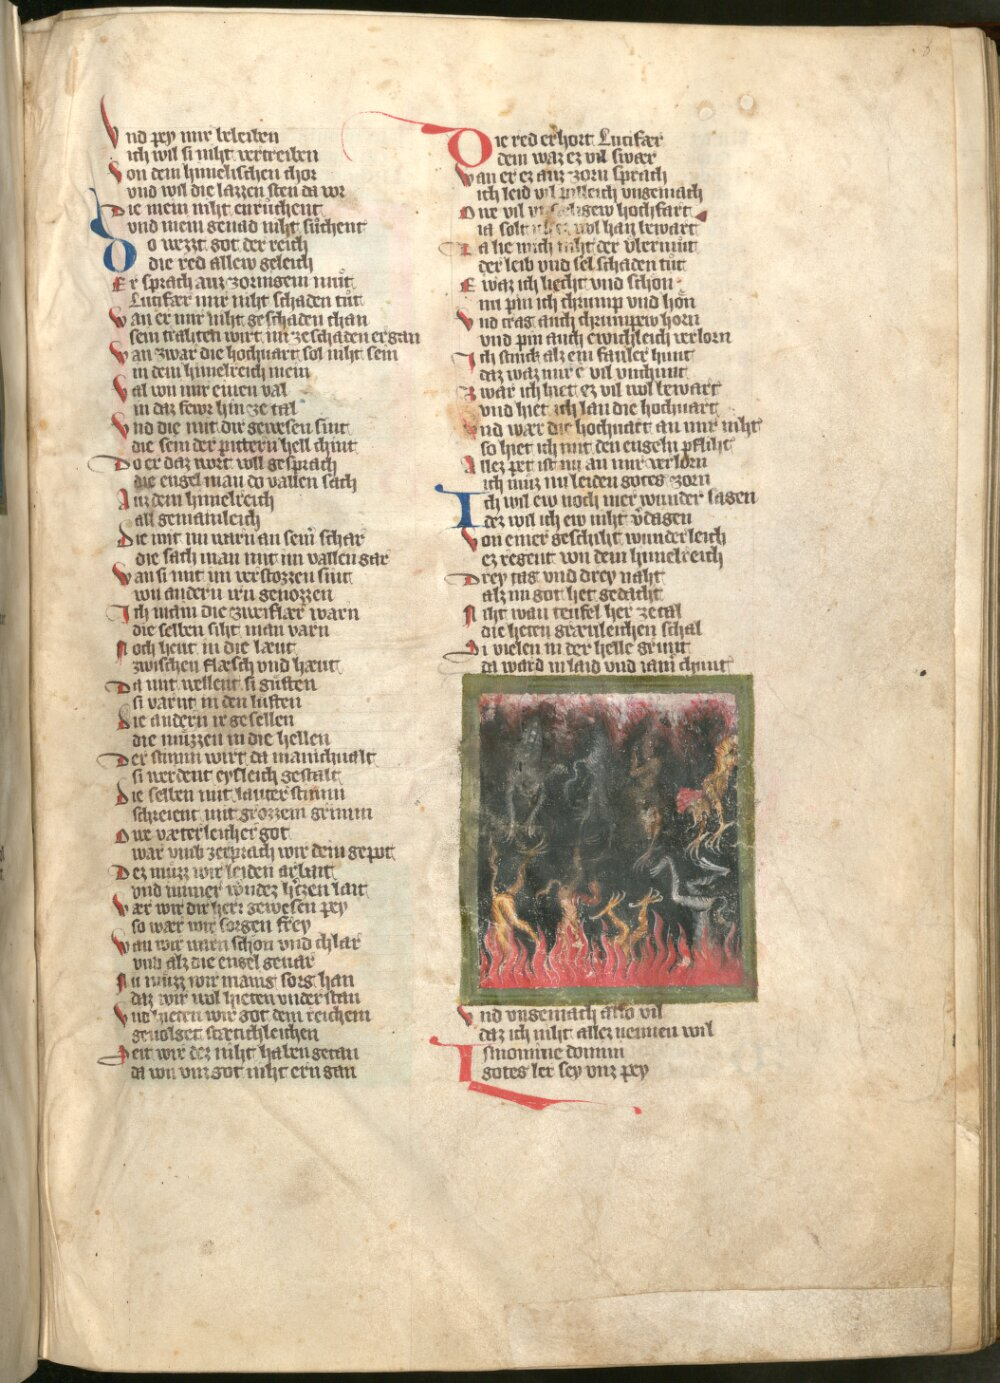 Vnd pey mir beleiben
ich wil si niht vertreiben
Von dem himelischen chor
vnd wil die lazzen sten da vor
Die mein niht enruͦchent
vnd mein genad niht suͦchent
Do wezzt got der reich
die red allew geleich
Er sprach auz zornigem muͦt
Lucifær mir niht schaden tuͦt
Wan er mir niht geschaden chan
sein trahten wirt im ze schaden ergan
Wan zwar die hochuart sol niht sein
in dem himelreich mein
Val von mir einen val
in daz fewr hin ze tal
Vnd die mit dir gewesen sint
die sein der pittern hell chint
Do er daz wort wol gesprach
die engel man do vallen sach
Auz dem himelreich
all gemainleich
Die mit im warn an seiner schar
die sach man mit im vallen gar
Wan si mit im verstozzen sint
von andern irn genozzen
Ich main die zweiflær warn
die selben siht man varn
Noch heut in die læut
zwischen flæsch vnd hæut
Da mit wellent si gusten
si varnt in den luften
Die andern ir gesellen
die muͤzzen in die hellen
Der stimm wirt da manichualt
si werdent eysleich gestalt
Die selben mit lauter stimm
schreient mit grozzem grimm
Owe væterleicher got
war vmb zerprach wir dein gepot
Dez muͤzz wir leiden arbait
vnd immer wunder hitzen lait
Wær wir dir herr gewesen pey
so wær wir sorgen frey
Wan wir warn schon vnd chlar
vnd alz die engel gevar
Nu muͤzz wir manig sorg han
daz wir wol hieten vnderstan
Vnd hieten wir got dem reichem
geuolget stætichleichen
Seit wir dez niht haben getan
da von vnz got niht ern gan
Die red erhort Lucifær
dem waz ez vil swær
Wan er ez auz zorn sprach
ich leid vil pilleich vngemach
Owe vil vnsæligew hochfart
ia solt ich ez wol han bewart
Da lie mich niht der vbermuͦt
der leib vnd sel schaden tuͦt
E waz ich liecht vnd schon
nu pin ich chrump vnd hoͤn
Vnd trag auch chrumpew horn
vnd pin auch ewichleich verlorn
Ich stinck alz ein fauler hunt
daz waz mir e vil vnchunt
Zwar ich hiet ez vil wol bewart
vnd hiet ich lan die hochuart
Vnd wær die hochuart an mir niht
so hiet ich mit den engeln pfliht
Allez pet ist nu an mir verlorn
ich muͤz nu leiden gotes zorn
Ich wil ew noch mer wunder sagen
dez wil ich ew niht verdagen
Von einer geschiht wunderleich
ez regent von dem himelreich
Drey tag vnd drey naht
alz im got het gedacht
Niht wan teufel her ze tal
die heten græuleichen schal
Si vielen in der helle grunt
da ward in laid vnd iamer chunt
Vnd vngemach also vil
daz ich niht allez nennen wil
In nomine domini
gotes ler sey vnz pey